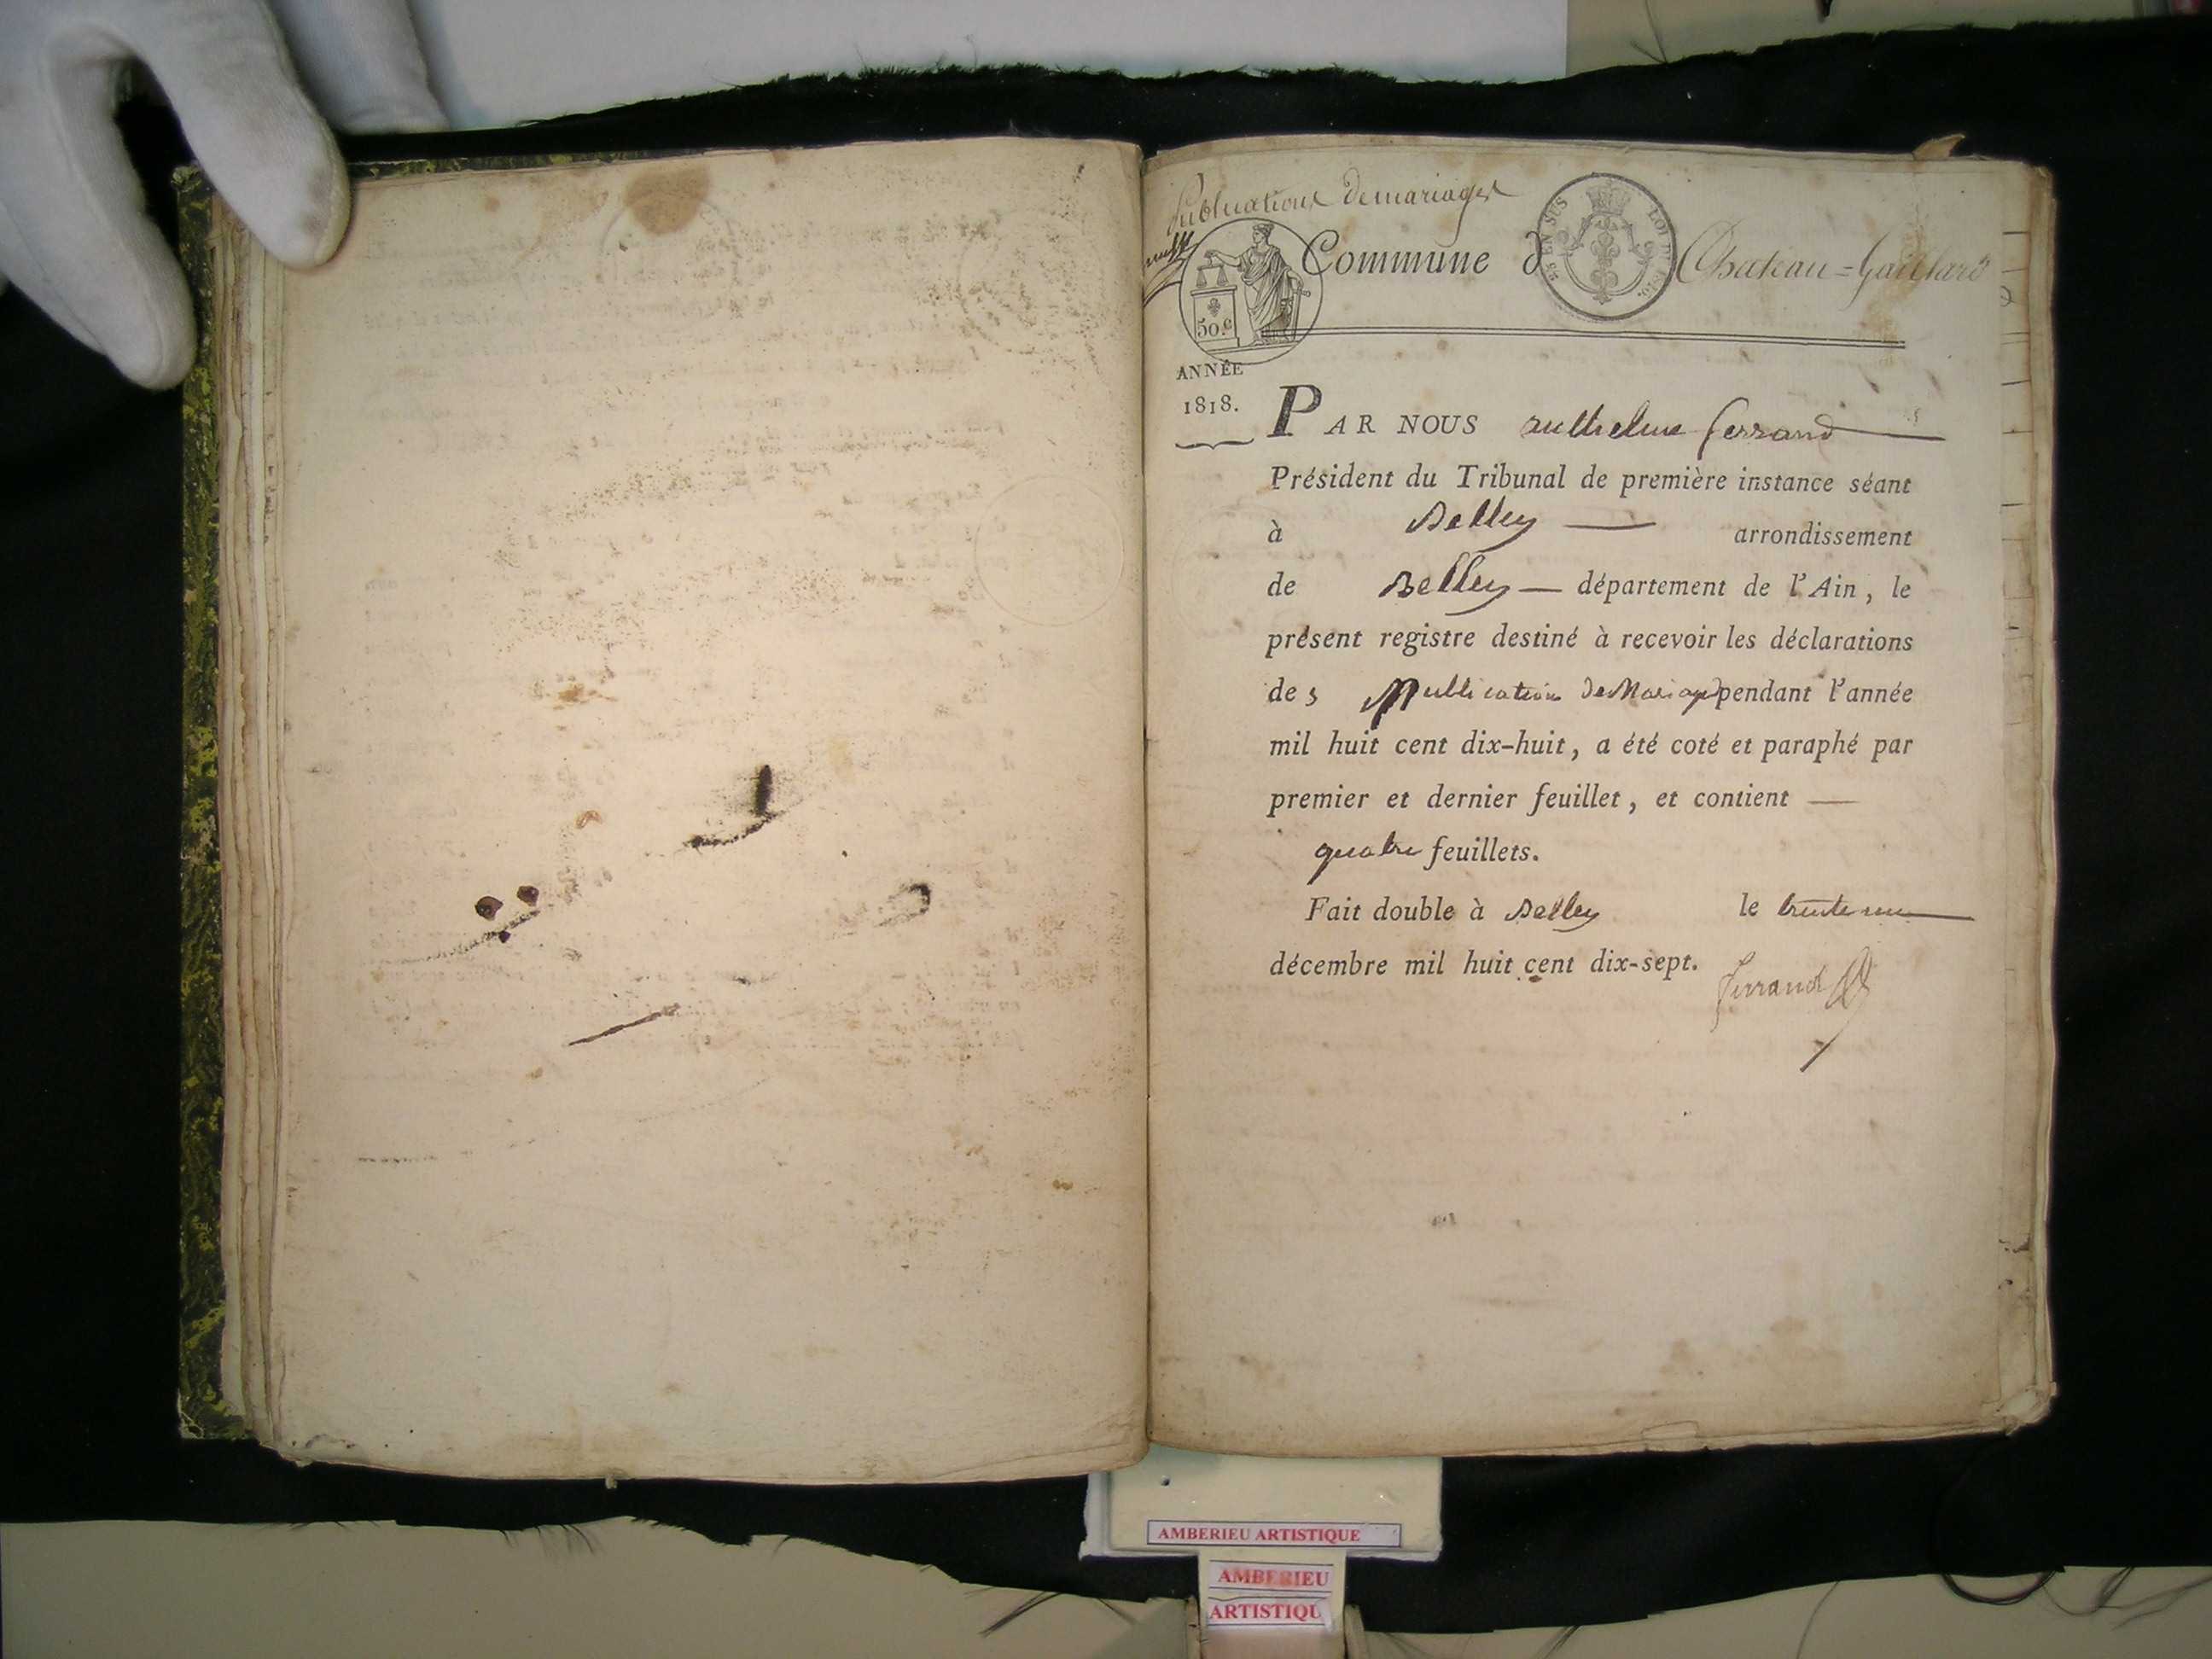 Publications de mariages
Commune d Chateau=Gaillard
25 EN SUS LOI DE 1816.
50.c
ANNÉE
1818.
PAR NOUS anthelme ferrand
Président du Tribunal de première instance séant
à Belley — arrondissement
de Belley — département de l'Ain, le
présent registre destiné à recevoir les déclarations
des Publication de Mariage pendant l'année
mil huit cent dix-huit, a été coté et paraphé par
premier et dernier feuillet, et contient —
quatre feuillets.
Fait double à Belley le trente un
décembre mil huit cent dix-sept.
Ferrand
AMBERIEU ARTISTIQUE
AMBERIEU
ARTISTIQU